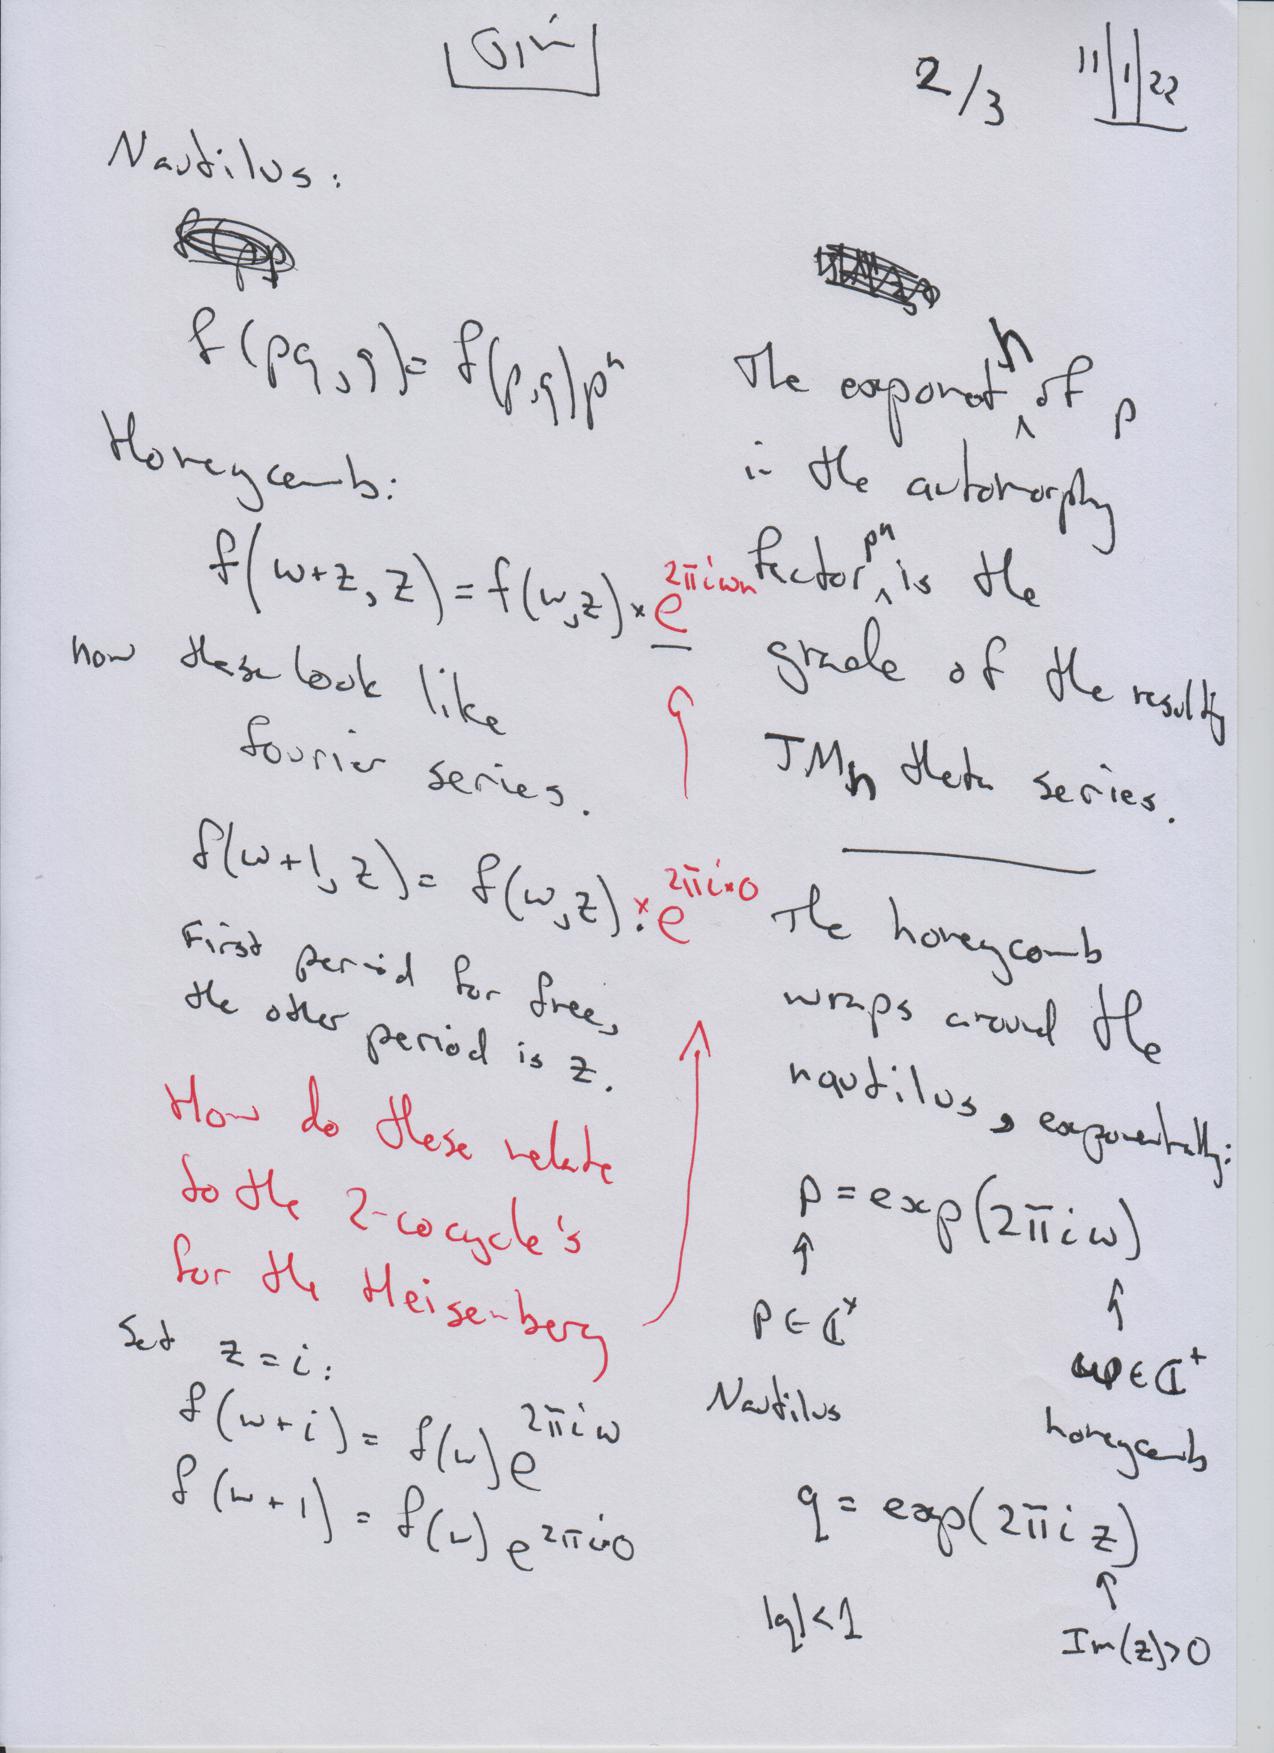 2/3
11/1/22
Nautilus:
f(pq, q) = f(p,q) pⁿ
Honeycomb:
f(w+z, z) = f(w,z) × e^{2πiwn}
now these look like
fourier series.
f(w+1, z) = f(w,z) × e^{2πi·0}
First period for free,
the other period is z.
How do these relate
to the 2-cocycle's
for the Heisenberg
Set z = i:
f(w+i) = f(w) e^{2πiw}
f(w+1) = f(w) e^{2πi·0}
The exponent n of p
in the automorphy
factor pⁿ is the
grade of the resulting
JMₙ theta series.
The honeycomb
wraps around the
nautilus, exponentially:
p = exp(2πiw)
↑ ↑
p ∈ ℂ^× w ∈ ℂ⁺
Nautilus honeycomb
q = exp(2πiz)
↑
|q| < 1 Im(z) > 0